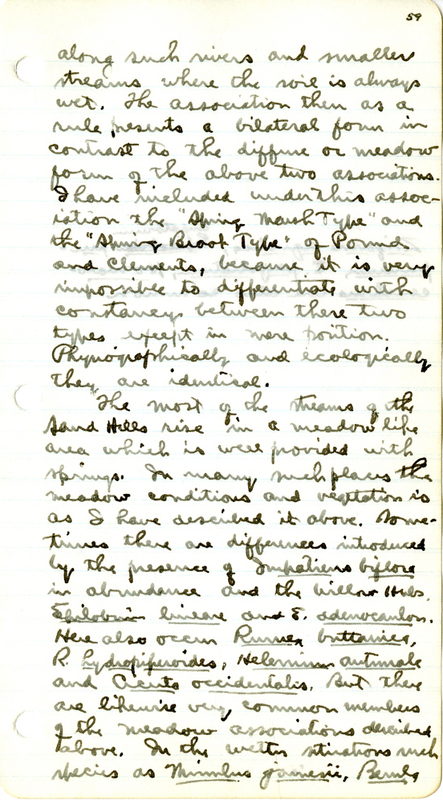 59
along such rivers and smaller
streams where the soil is always
wet. The association then as a
rule presents a bilateral form in
contrast to the diffuse or meadow
form of the above two associations.
I have included under this assoc-
iation the "Spring Marsh Type" and
the "Spring Brook Type" of Pound
and Clements, because it is very
impossible to differentiate with
constancy between these two
types except in mere position.
Physiographically and ecologically
they are identical.
The most of the streams of the
Sand Hills rise in a meadow like
area which is well provided with
springs. In many such places the
meadow conditions and vegetation is
as I have described it above. Some-
times there are differences introduced
by the presence of Impatiens biflora
in abundance and the willow herbs,
Epilobium lineare and E. adenocaulon.
Here also occur Rumex brittanica,
R. hydropiperoides, Helenium autumale
and Cicuta occidentalis. But these
are likewise very common members
of the meadow associations described
above. In the wetter situations such
species as Mimulus jamesii, Berula